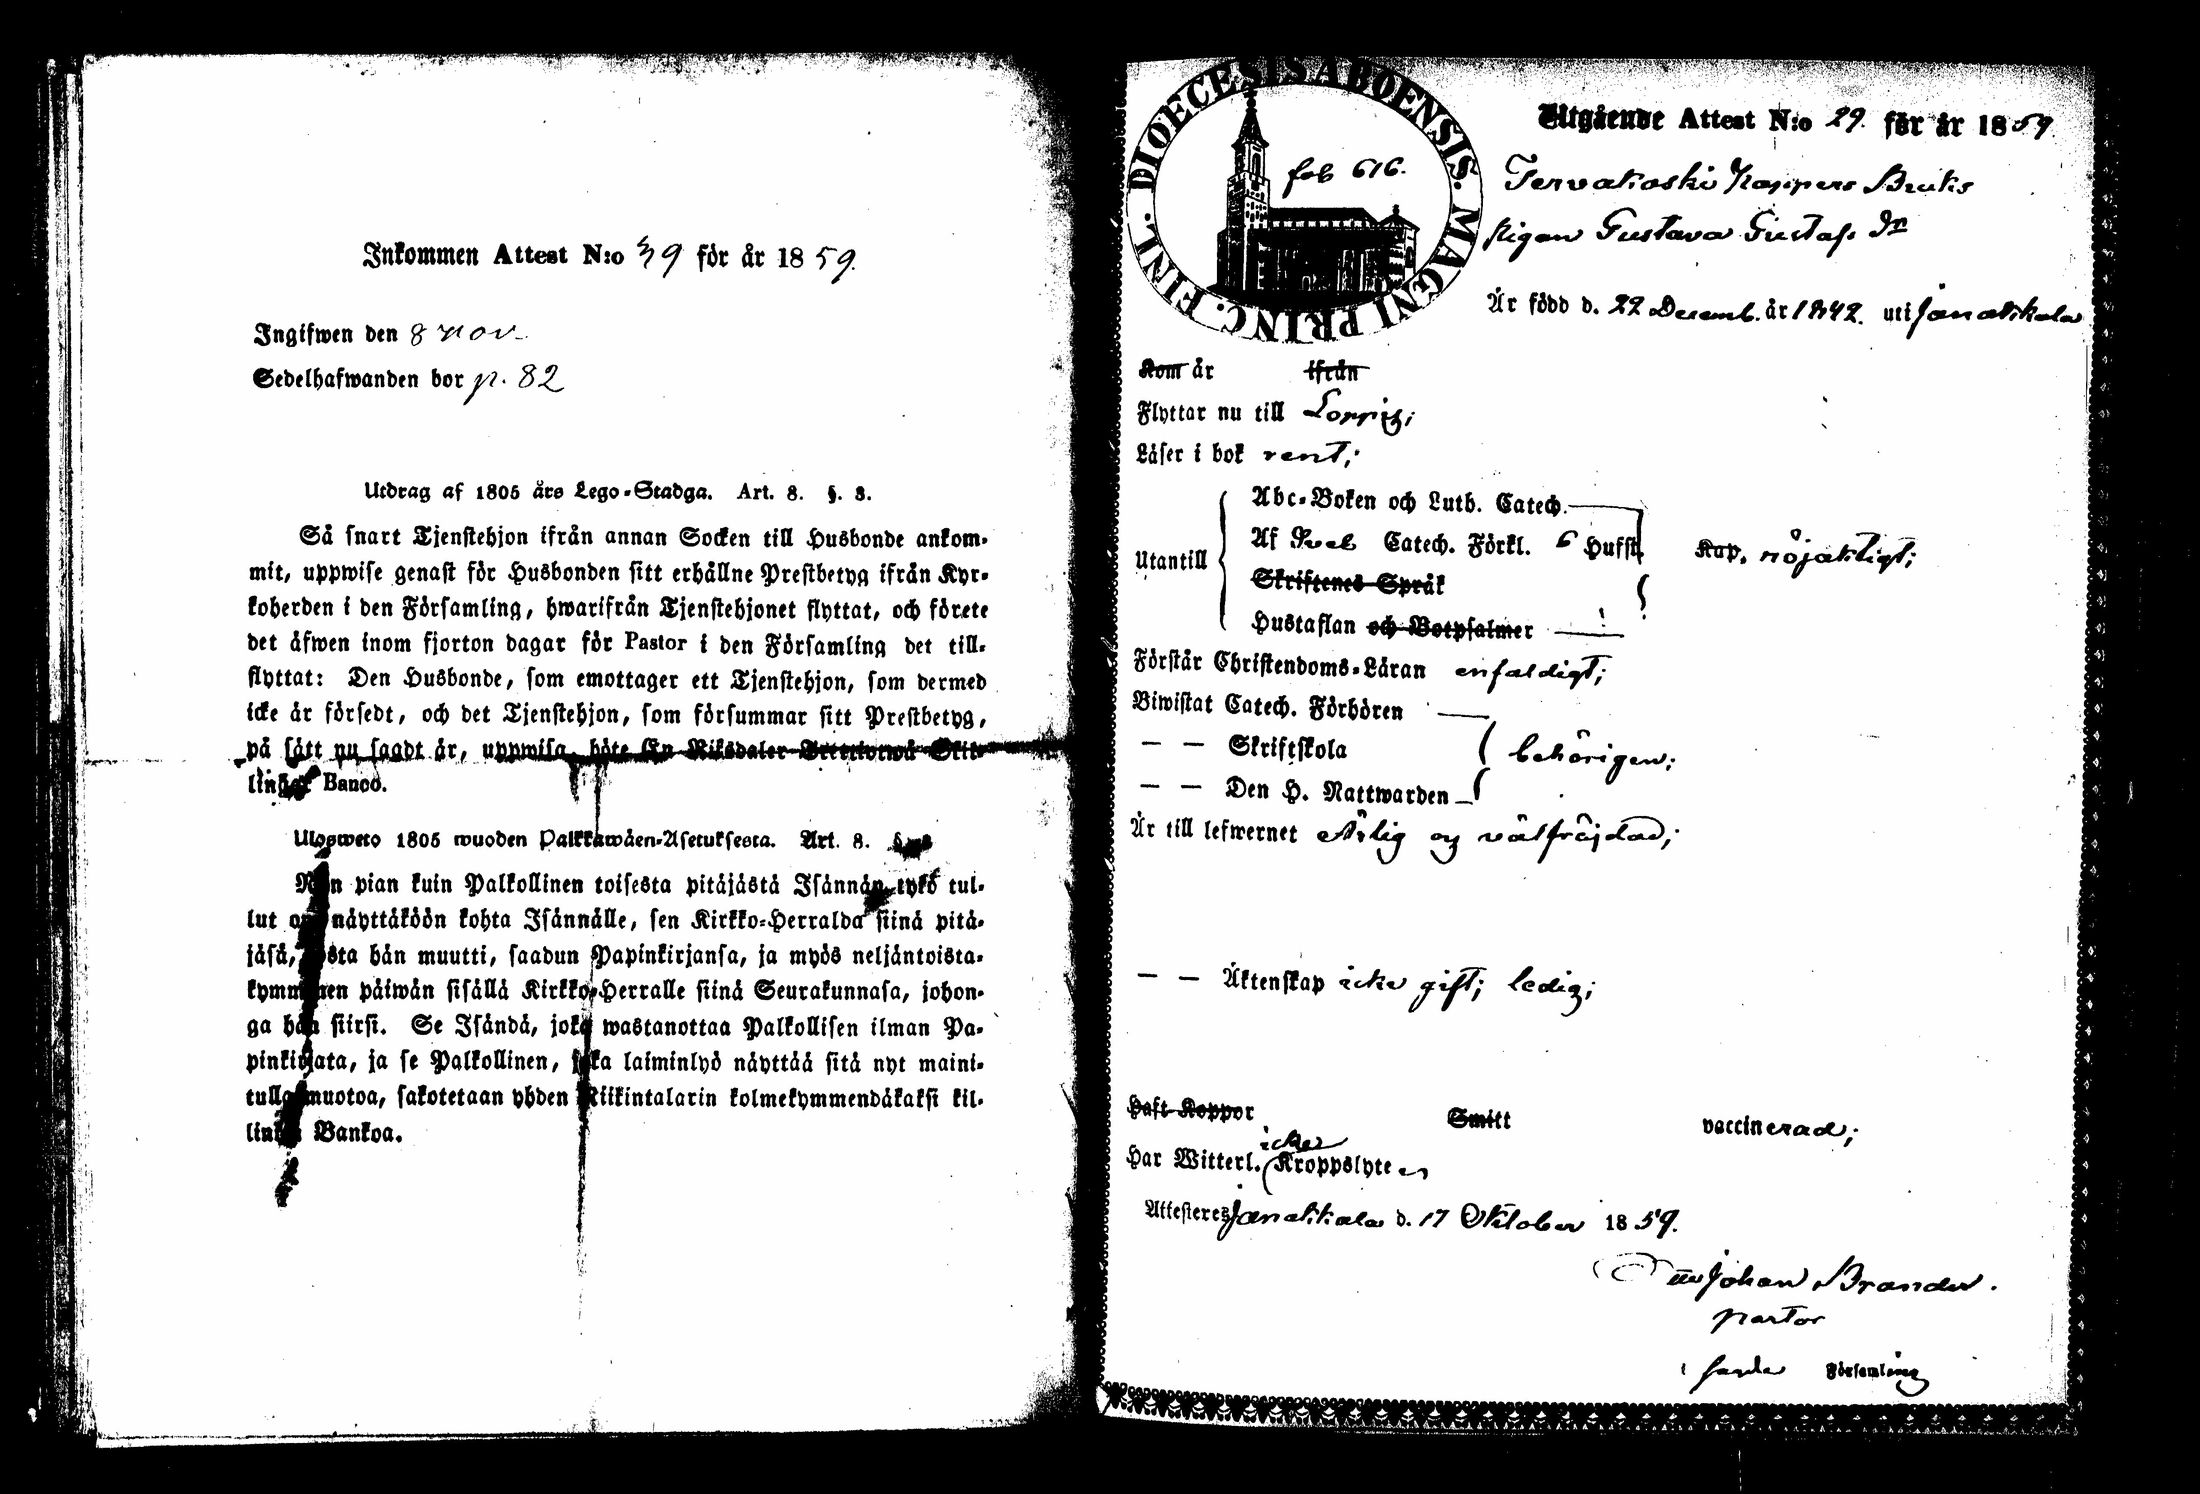 Inkommen Attest N:o 39 för år 1859.
Ingifwen den 8 nov.
Sedelhafwanden bor p. 82
Utdrag af 1805 års Lego-Stadga. Art. 8. §. 3.
Så snart Tjenstehjon ifrån annan Socken till Husbonde ankom-
mit, uppwise genast för Husbonden sitt erhållne Prestbetyg ifrån Kyr-
koherden i den Församling, hwarifrån Tjenstehjonet flyttat, och förete
det äfwen inom fjorton dagar för Pastor i den Församling det till-
flyttat: Den Husbonde, som emottager ett Tjenstehjon, som dermed
icke är försedt, och det Tjenstehjon, som försummar sitt Prestbetyg,
på sätt nu sagdt är, uppwisa, böte En Riksdaler Trettiotwå Skil-
lingar Banco.
Ulosweto 1805 wuoden Palkkawäen-Asetuksesta. Art. 8. §. 3
Niin pian kuin Palkollinen toisesta pitäjästä Isännän tykö tul-
lut on, näyttäköön kohta Isännälle, sen Kirkko-Herralda siinä pitä-
jäsä, josta hän muutti, saadun Papinkirjansa, ja myös neljäntoista-
kymmenen päiwän sisällä Kirkko-Herralle siinä Seurakunnasa, johon-
ga hän siirsi. Se Isändä, joka wastanottaa Palkollisen ilman Pa-
pinkirjata, ja se Palkollinen, joka laiminlyö näyttää sitä nyt maini-
tulla muotoa, sakotetaan yhden Riikintalarin kolmekymmendäkaksi kil-
linkiä Bankoa.
DIOECESIS ABOENSIS. MAGNI PRINC. FINL.
fol 616.
Utgående Attest N:o 29. för år 1859
Tervakoski Pappers Bruks
Pigan Gustava Gustafs dr
Är född d. 22 Decemb. år 1842. uti Janakkala
Kom år ifrån
Flyttar nu till Loppis;
Läser i bok rent;
Utantill
Abc-Boken och Luth. Catech.
Af Sveb Catech. Förkl. 6 Hufst. Kap. nöjaktigt;
Skriftenes Språk
Hustaflan och Botpsalmer
Förstår Christendoms-Läran enfaldigt;
Biwistat Catech. Förhören
— — Skriftskola behörigen;
— — Den H. Nattwarden
Är till lefwernet ärlig og välfräjdad;
— — Äktenskap icke gift; ledig;
Haft Koppor Smitt vaccinerad;
icke
Har Witterl. Kroppslyte
Attesteras Janakkala d. 17 Oktober 1859.
Johan Brander.
pastor
i Församling